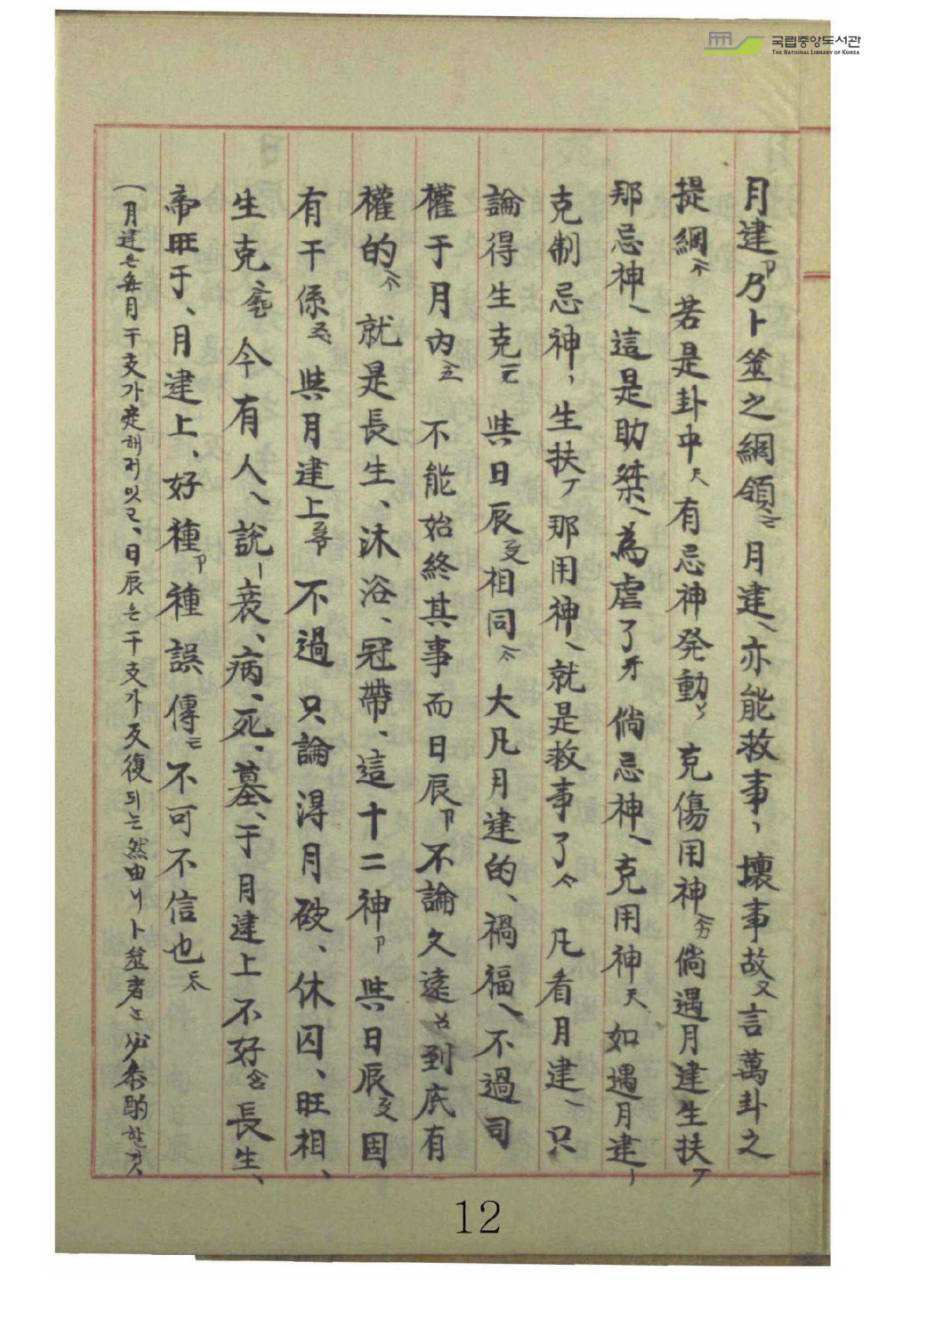 국립중앙도서관
THE NATIONAL LIBRARY OF KOREA
月建卩乃卜筮之綱領 月建、亦能救事、壞事故又言萬卦之
提綱 若是卦中 有忌神発動 克傷用神 倘遇月建生扶
那忌神、這是助桀、為虐了 倘忌神、克用神 如遇月建、
克制忌神、生扶 那用神、就是救事了 凡看月建、只
論得生克 與日辰 相同 大凡月建的、禍福、不過司
權于月內 不能始終其事而日辰卩不論久遠 到底有
權的 就是長生、沐浴、冠帶、這十二神卩 與日辰 固
有干係 與月建上 不過 只論 得月破、休囚、旺相、
生克 今有人、說 衰、病、死、墓、于月建上不好 長生、
帝旺于、月建上、好 種卩種誤傳 不可不信也
(月建은每月干支가定해저잇고、日辰은干支가反復되는然由니卜筮者는必參酌할것
12